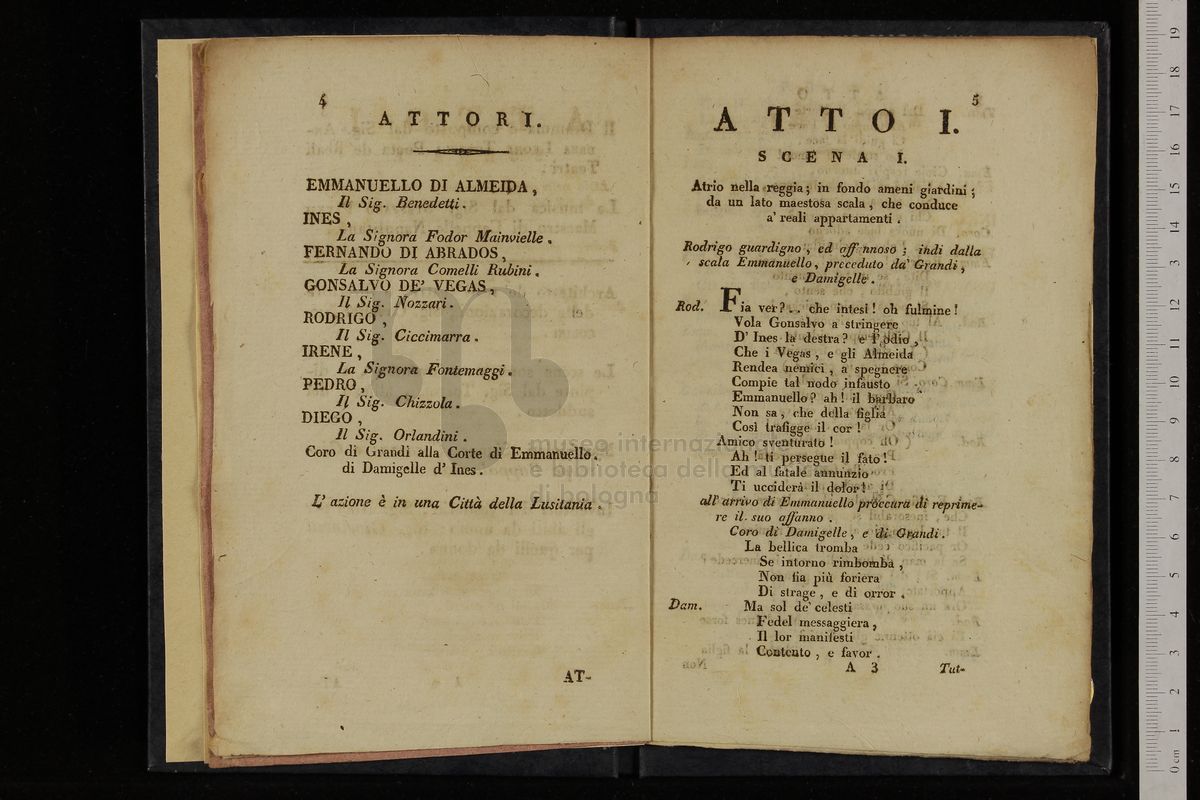 4
ATTORI.
EMMANUELLO DI ALMEIDA,
Il Sig. Benedetti.
INES,
La Signora Fodor Mainvielle.
FERNANDO DI ABRADOS,
La Signora Comelli Rubini.
GONSALVO DE' VEGAS,
Il Sig. Nozzari.
RODRIGO,
Il Sig. Ciccimarra.
IRENE,
La Signora Fontemaggi.
PEDRO,
Il Sig. Chizzola.
DIEGO,
Il Sig. Orlandini.
Coro di Grandi alla Corte di Emmanuello.
di Damigelle d' Ines.
L' azione è in una Città della Lusitania.
AT-
5
ATTO I.
SCENA I.
Atrio nella reggia; in fondo ameni giardini;
da un lato maestosa scala, che conduce
a' reali appartamenti.
Rodrigo guardigno, ed affannoso; indi dalla
scala Emmanuello, preceduto da' Grandi,
e Damigelle.
Rod. Fia ver?.. che intesi! oh fulmine!
Vola Gonsalvo a stringere
D' Ines la destra? e l' odio,
Che i Vegas, e gli Almeida
Rendea nemici, a spegnere
Compie tal nodo infausto
Emmanuello? ah! il barbaro
Non sa, che della figlia
Così trafigge il cor!
Amico sventurato!
Ah! ti persegue il fato!
Ed al fatale annunzio
Ti ucciderà il dolor!
all' arrivo di Emmanuello proccura di reprime-
re il suo affanno.
Coro di Damigelle, e di Grandi.
La bellica tromba
Se intorno rimbomba,
Non sia più foriera
Di strage, e di orror.
Dam. Ma sol de' celesti
Fedel messaggiera,
Il lor manifesti
Contento, e favor.
A 3 Tut-
museo internazionale
e biblioteca della musica
di bologna